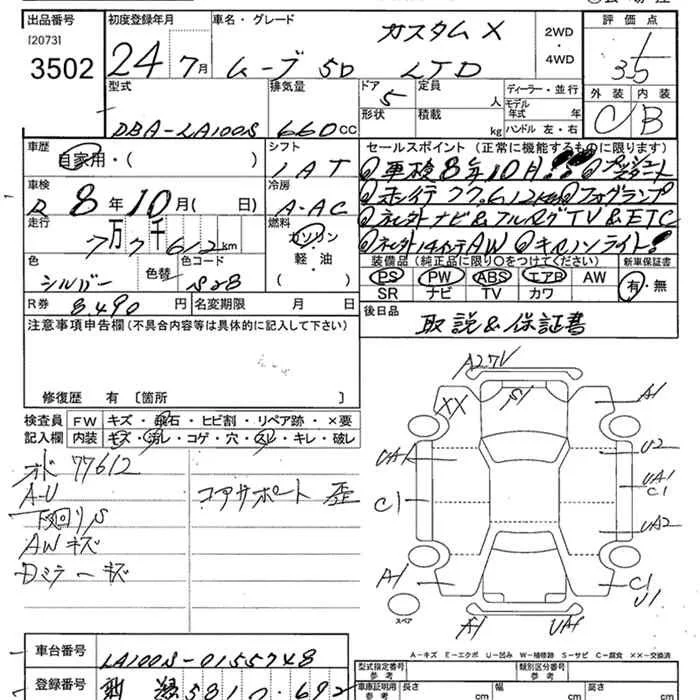 出品番号 初度登録年月 車名・グレード カスタム X 2WD 評価点
[2073] ・ 3.5
3502 24 7月 ムーブ 5D LTD 4WD 外装 内装
型式 排気量 ドア 5 定員 人 ディーラー・並行 C B
DBA-LA100S 660cc 形状 積載 kg モデル年式 年 ハンドル 左・右
車歴 シフト セールスポイント (正常に機能するものに限ります)
自家用・( ) IAT 車検8年10月!! プッシュスタート
車検 冷房 ホ,行 77,612km フォグランプ
R 8年10月( 日) A-AC ネ外ナビ&フルセグTV&ETC
走行 燃料 ネ外14インチAW キセノンライト!
7万7千612km ガソリン 装備品 (純正品に限り○をつけてください) 新車保証書
色 色替 色コード 軽・油 PS PW ABS エアB AW 有・無
シルバー S28 ( ) SR ナビ TV カワ
R券 8,490円 名変期限 月 日 後日品
注意事項申告欄 (不具合内容等は具体的に記入して下さい) 取説&保証書
修復歴 有 [箇所 ]
検査員 FW キズ・飛石・ヒビ割・リペア跡・×要
記入欄 内装 キズ・汚レ・コゲ・穴・スレ・キレ・破レ
オド 77612
A-U コアサポート 歪
下廻りS
AWキズ
Dミラーキズ
A2 7V
XX S1 A1
UA1 U2
C1 UA1
C1
UA2
A1 C1
U1
スペア A1 UA1
A-キズ E-エクボ U-凹み W-補修跡 S-サビ C-腐食 XX-交換済
車台番号 LA100S-0155748 型式指定番号 参考 類別区分番号 参考
登録番号 581 車庫証明用 参考 長さ cm 幅 cm 高さ cm